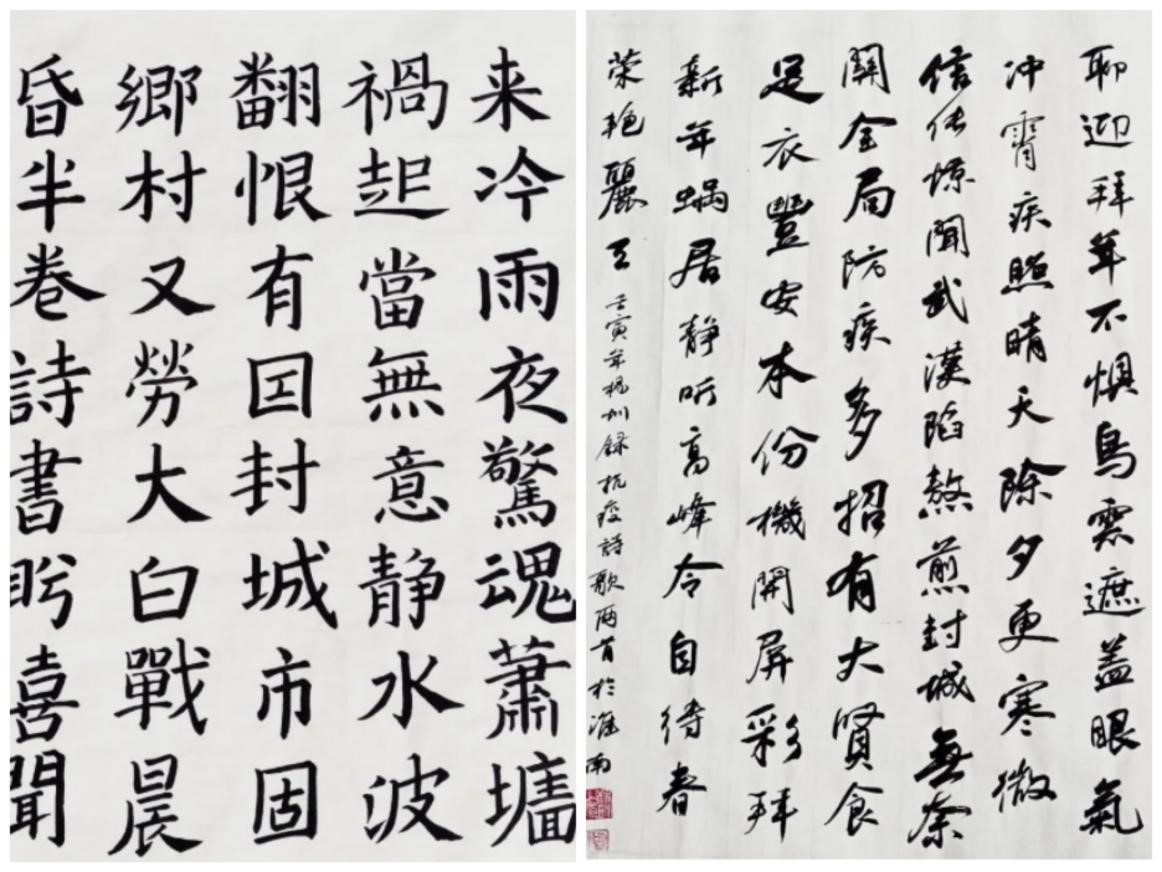 来冷雨夜驚魂蕭墻
禍起當無意静水波
翻恨有囙封城市固
鄉村又勞大白戰晨
昏半卷詩書盻喜聞
聊迎拜年不惧鳥雲遮蓋眼氣
冲霄疾照晴天除夕更寒微
信传惊聞武漢陷熬煎封城無奈
關全局防疾多招有大賢食
足衣豐安本份機開屏彩拜
新年蝸居静听高峰令自待春
荣艳麗
壬寅年楊圳録抗疫詩歌两首於淮南